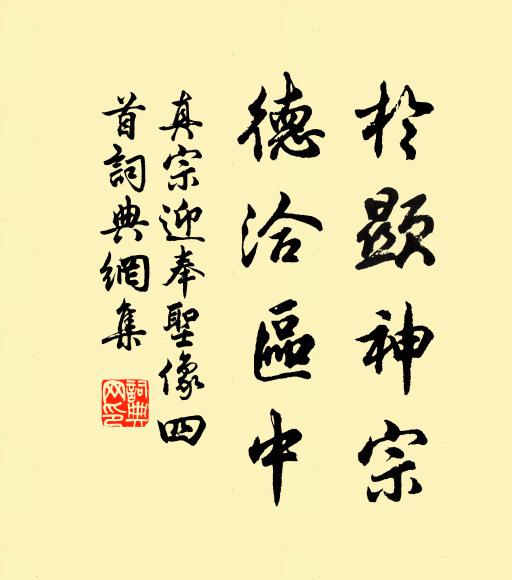 於顯神宗
德洽區中
真宗迎奉聖像四
首詞典網集
詞典
网印